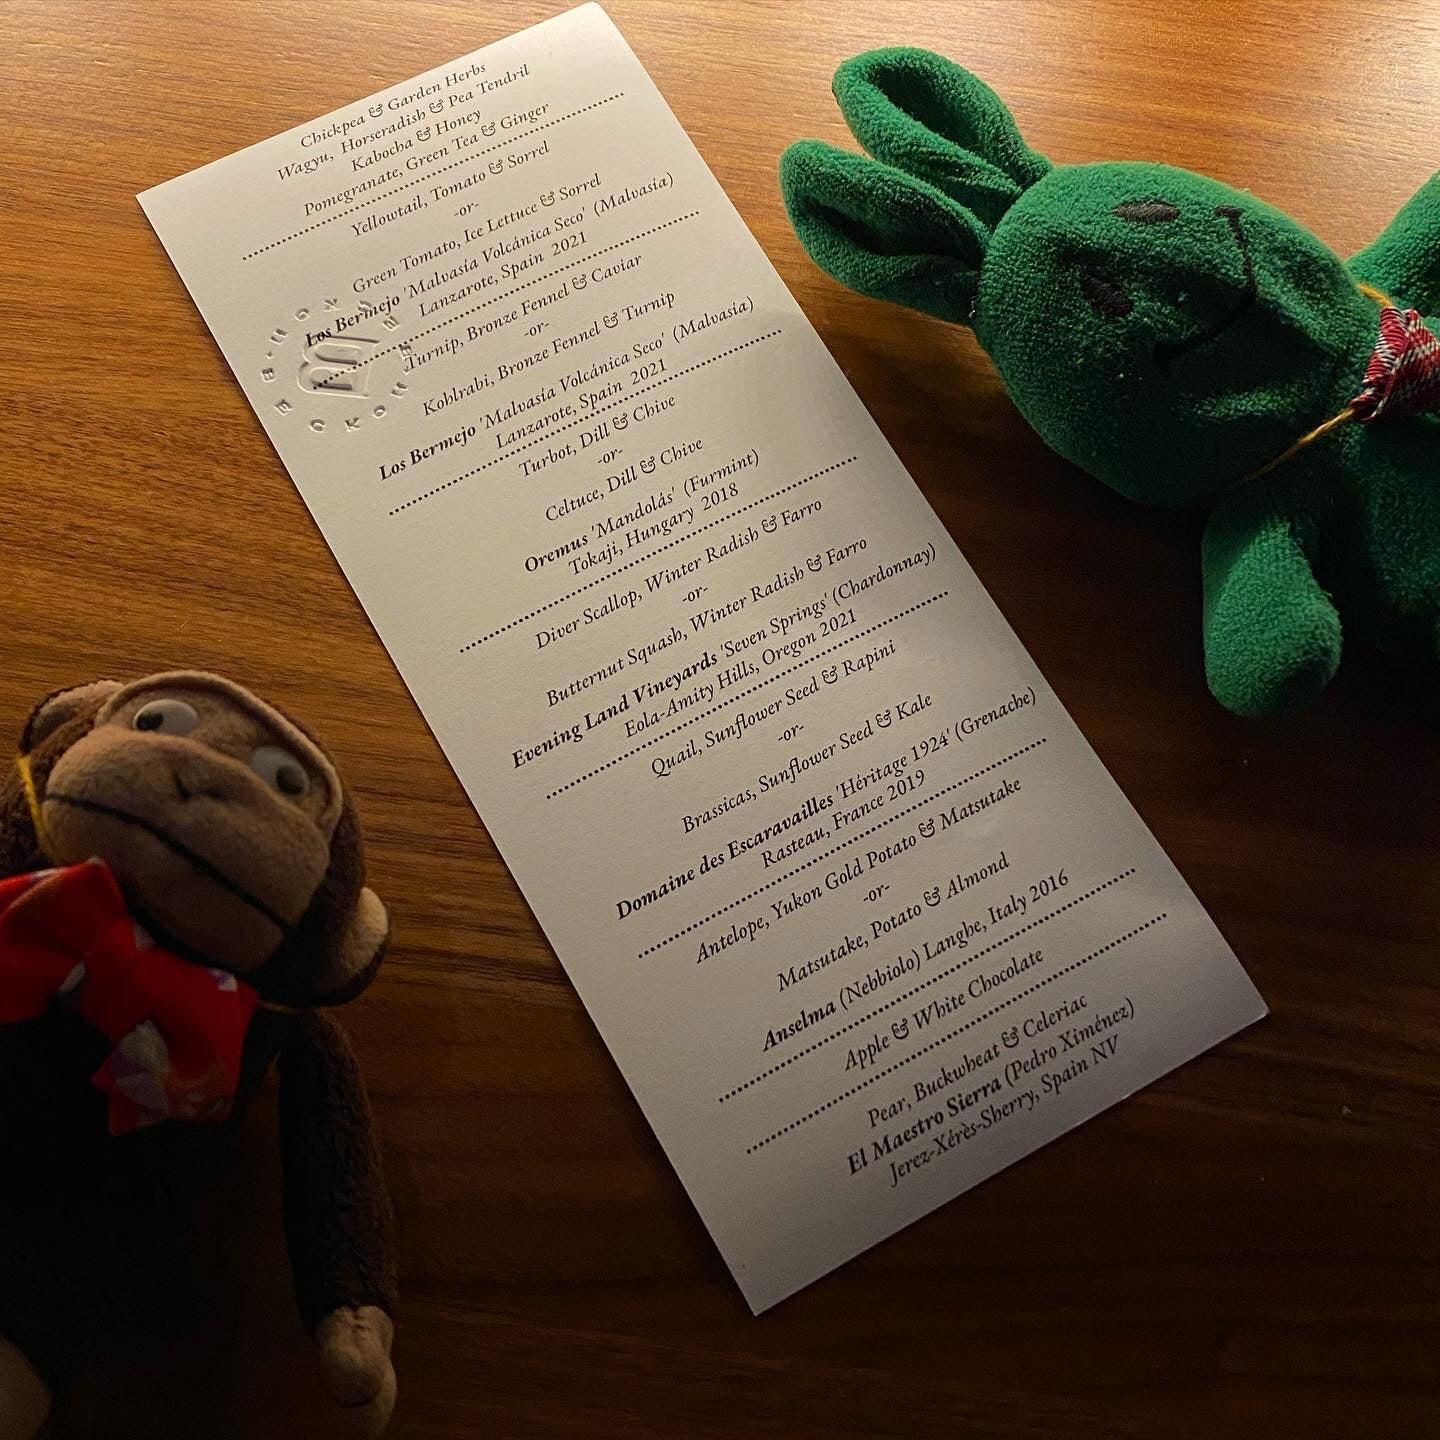 Chickpea & Garden Herbs
Wagyu, Horseradish & Pea Tendril
Kabocha & Honey
Pomegranate, Green Tea & Ginger
Yellowtail, Tomato & Sorrel
-or-
Green Tomato, Ice Lettuce & Sorrel
Los Bermejo 'Malvasia Volcánica Seco' (Malvasía)
Lanzarote, Spain 2021
Turnip, Bronze Fennel & Caviar
-or-
Kohlrabi, Bronze Fennel & Turnip
Los Bermejo 'Malvasia Volcánica Seco' (Malvasía)
Lanzarote, Spain 2021
Turbot, Dill & Chive
-or-
Celtuce, Dill & Chive
Oremus 'Mandolás' (Furmint)
Tokaji, Hungary 2018
Diver Scallop, Winter Radish & Farro
-or-
Butternut Squash, Winter Radish & Farro
Evening Land Vineyards 'Seven Springs' (Chardonnay)
Eola-Amity Hills, Oregon 2021
Quail, Sunflower Seed & Rapini
-or-
Brassicas, Sunflower Seed & Kale
Domaine des Escaravailles 'Héritage 1924' (Grenache)
Rasteau, France 2019
Antelope, Yukon Gold Potato & Matsutake
-or-
Matsutake, Potato & Almond
Anselma (Nebbiolo) Langhe, Italy 2016
Apple & White Chocolate
Pear, Buckwheat & Celeriac
El Maestro Sierra (Pedro Ximénez)
Jerez-Xérès-Sherry, Spain NV